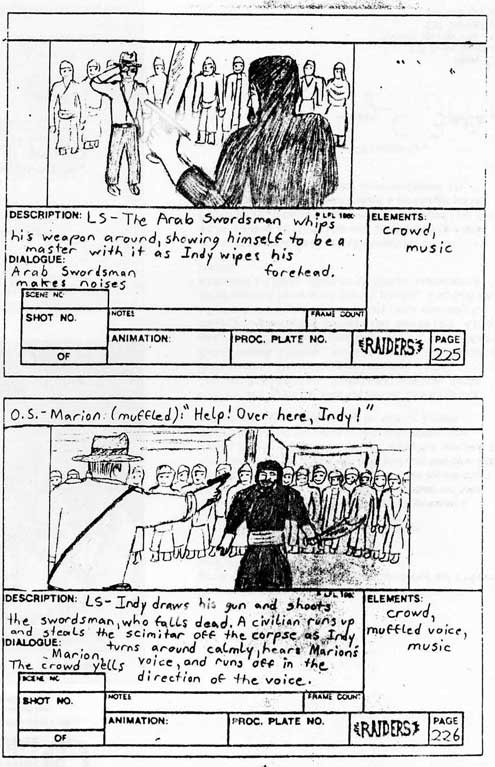 DESCRIPTION: LS-The Arab Swordsman whips
© LFL 1980
his weapon around, showing himself to be a
master with it as Indy wipes his
forehead.
DIALOGUE:
Arab Swordsman
makes noises
ELEMENTS:
crowd,
music
SCENE NO.
SHOT NO.
OF
NOTES
FRAME COUNT
ANIMATION:
PROC. PLATE NO.
RAIDERS
PAGE
225
O.S.-Marion: (muffled): "Help! Over here, Indy!"
DESCRIPTION: LS-Indy draws his gun and shoots
the swordsman, who falls dead. A civilian runs up
and steals the scimitar off the corpse as Indy
turns around calmly, hears Marion's
voice, and runs off in the
direction of the voice.
DIALOGUE:
Marion,
The crowd yells
ELEMENTS:
crowd,
muffled voice,
music
SCENE NO.
SHOT NO.
OF
NOTES
FRAME COUNT
ANIMATION:
PROC. PLATE NO.
RAIDERS
PAGE
226